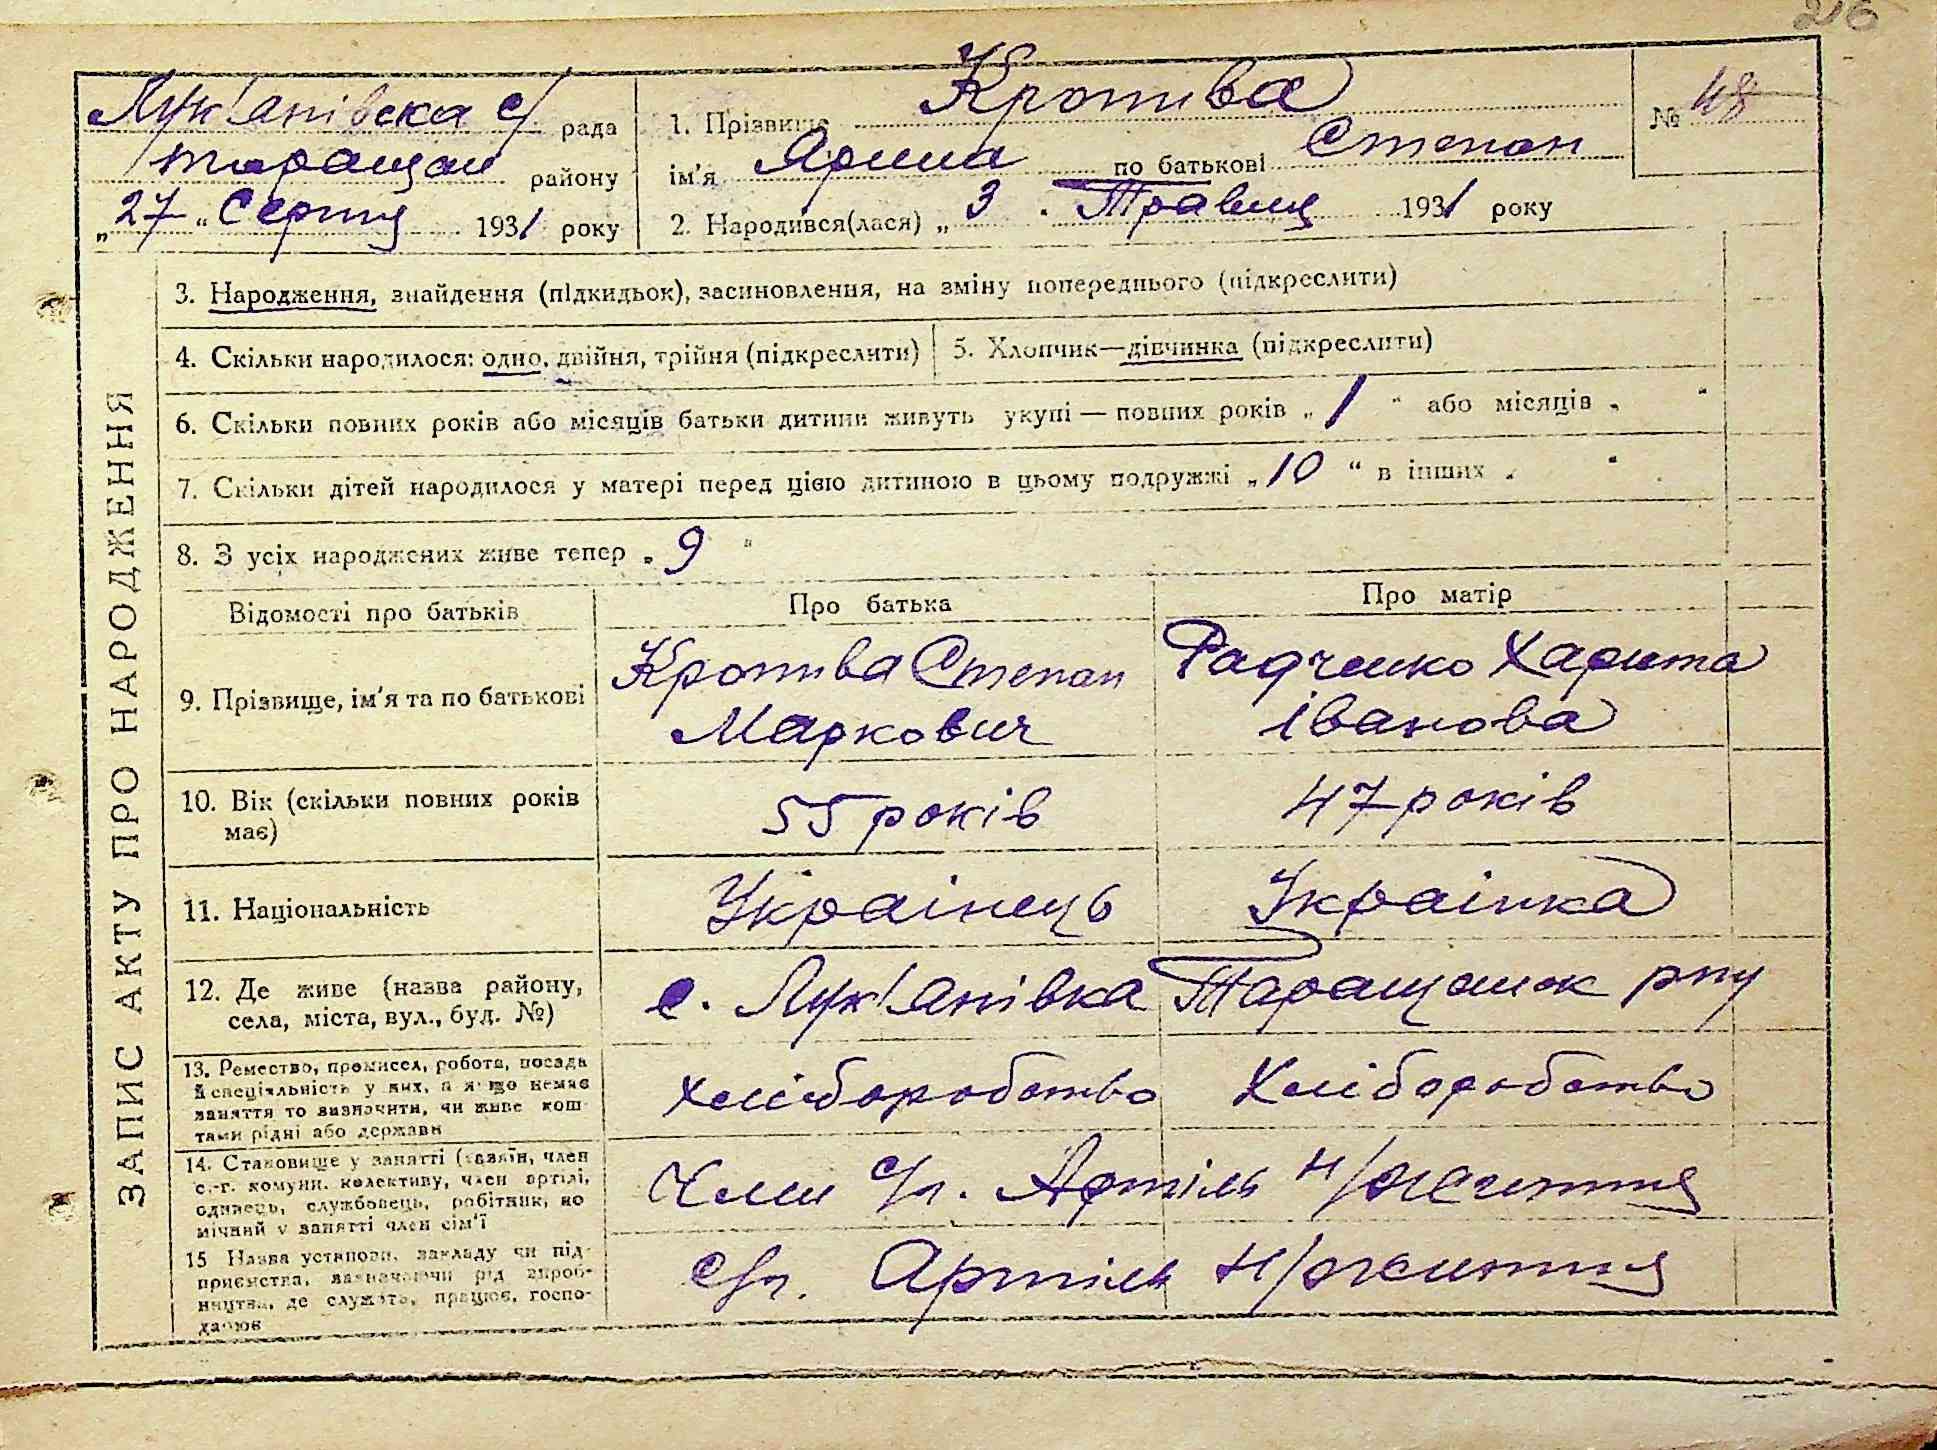 26
Лук'янівска с/ рада
Таращан району
„27“ Серпня 1931 року
1. Прізвище Кропива
ім'я Ярина по батькові Степан
2. Народився(лася) „3 . Травня 1931 року
№ 48
ЗАПИС АКТУ ПРО НАРОДЖЕННЯ
3. Народження, знайдення (підкидьок), засиновлення, на зміну попереднього (підкреслити)
4. Скільки народилося: одно, двійня, трійня (підкреслити)
5. Хлопчик—дівчинка (підкреслити)
6. Скільки повних років або місяців батьки дитини живуть укупі — повних років „ 1 “ або місяців „ “
7. Скільки дітей народилося у матері перед цією дитиною в цьому подружжі „10 “ в інших „ “
8. З усіх народжених живе тепер „ 9 “
Відомості про батьків
Про батька
Про матір
9. Прізвище, ім'я та по батькові
Кропива Степан
Маркович
Радченко Харита
Іванова
10. Вік (скільки повних років
має)
55 років
47 років
11. Національність
Украінець
Украінка
12. Де живе (назва району,
села, міста, вул., буд. №)
с. Лук'янівка Таращанск рну
13. Ремество, промисел, робота, посада
й спеціяльність у них, а якщо немає
заняття то визначити, чи живе кош-
тами рідні або держави
Хліборобство
Хліборобство
14. Становище у занятті (хазяїн, член
с.-г. комуни, колективу, член артілі,
одинець, службовець, робітник, по
мічний у занятті член сім'ї
Член с/г. Артіль н/життя
15 Назва установи, закладу чи під-
приємства, зазначаючи рід вироб-
ництва, де служить, працює, госпо-
дарює
с/г. Артіль н/життя